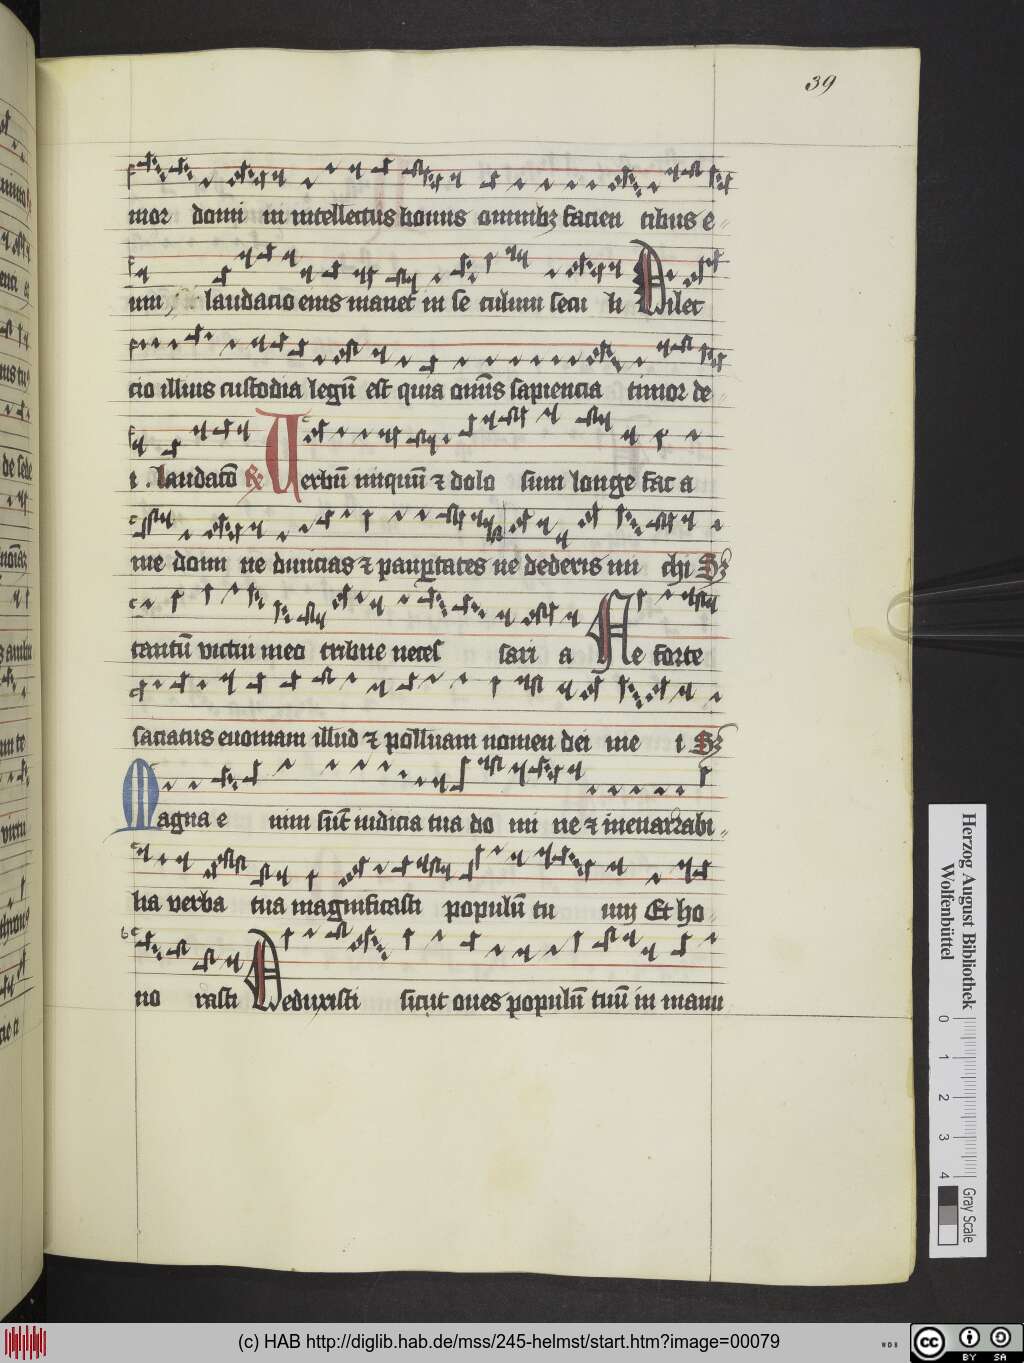 39
mor domi in intellectus bonus omnibz facien tibus e
um laudacio eius manet in se culum secu li Dilec
cio illius custodia legū est quia omīs sapiencia timor de
i . laudacō R Verbū iniquū ⁊ dolo sum longe fac a
me domi ne diuicias ⁊ pauꝑtates ne dederis mi chi Sz
tantū victui meo tribue neces sari a Ne forte
saciatus euomam illud ⁊ polluam nomen dei me i Sz
Magna e nim sūt iudicia tua do mi ne ⁊ inenarrabi
lia verba tua magnificasti populū tu um Et ho
no rasti Deduxisti sicut oues populū tuū in manu
Herzog August Bibliothek
Wolfenbüttel
0 1 2 3 4
Gray Scale
(c) HAB http://diglib.hab.de/mss/245-helmst/start.htm?image=00079
WDB
cc BY SA